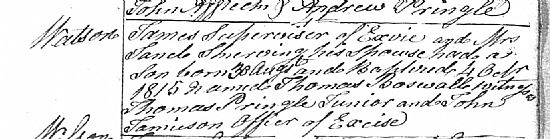 John Affleck & Andrew Pringle
Watson James Supervisor of Excise and Mrs
Janet Shereing his Spouse had a
Son born 30 Augt and Baptized 4 Octr
1815 named Thomas Boswall witnesses
Thomas Pringle Junior and John
Jamieson Officer of Excise